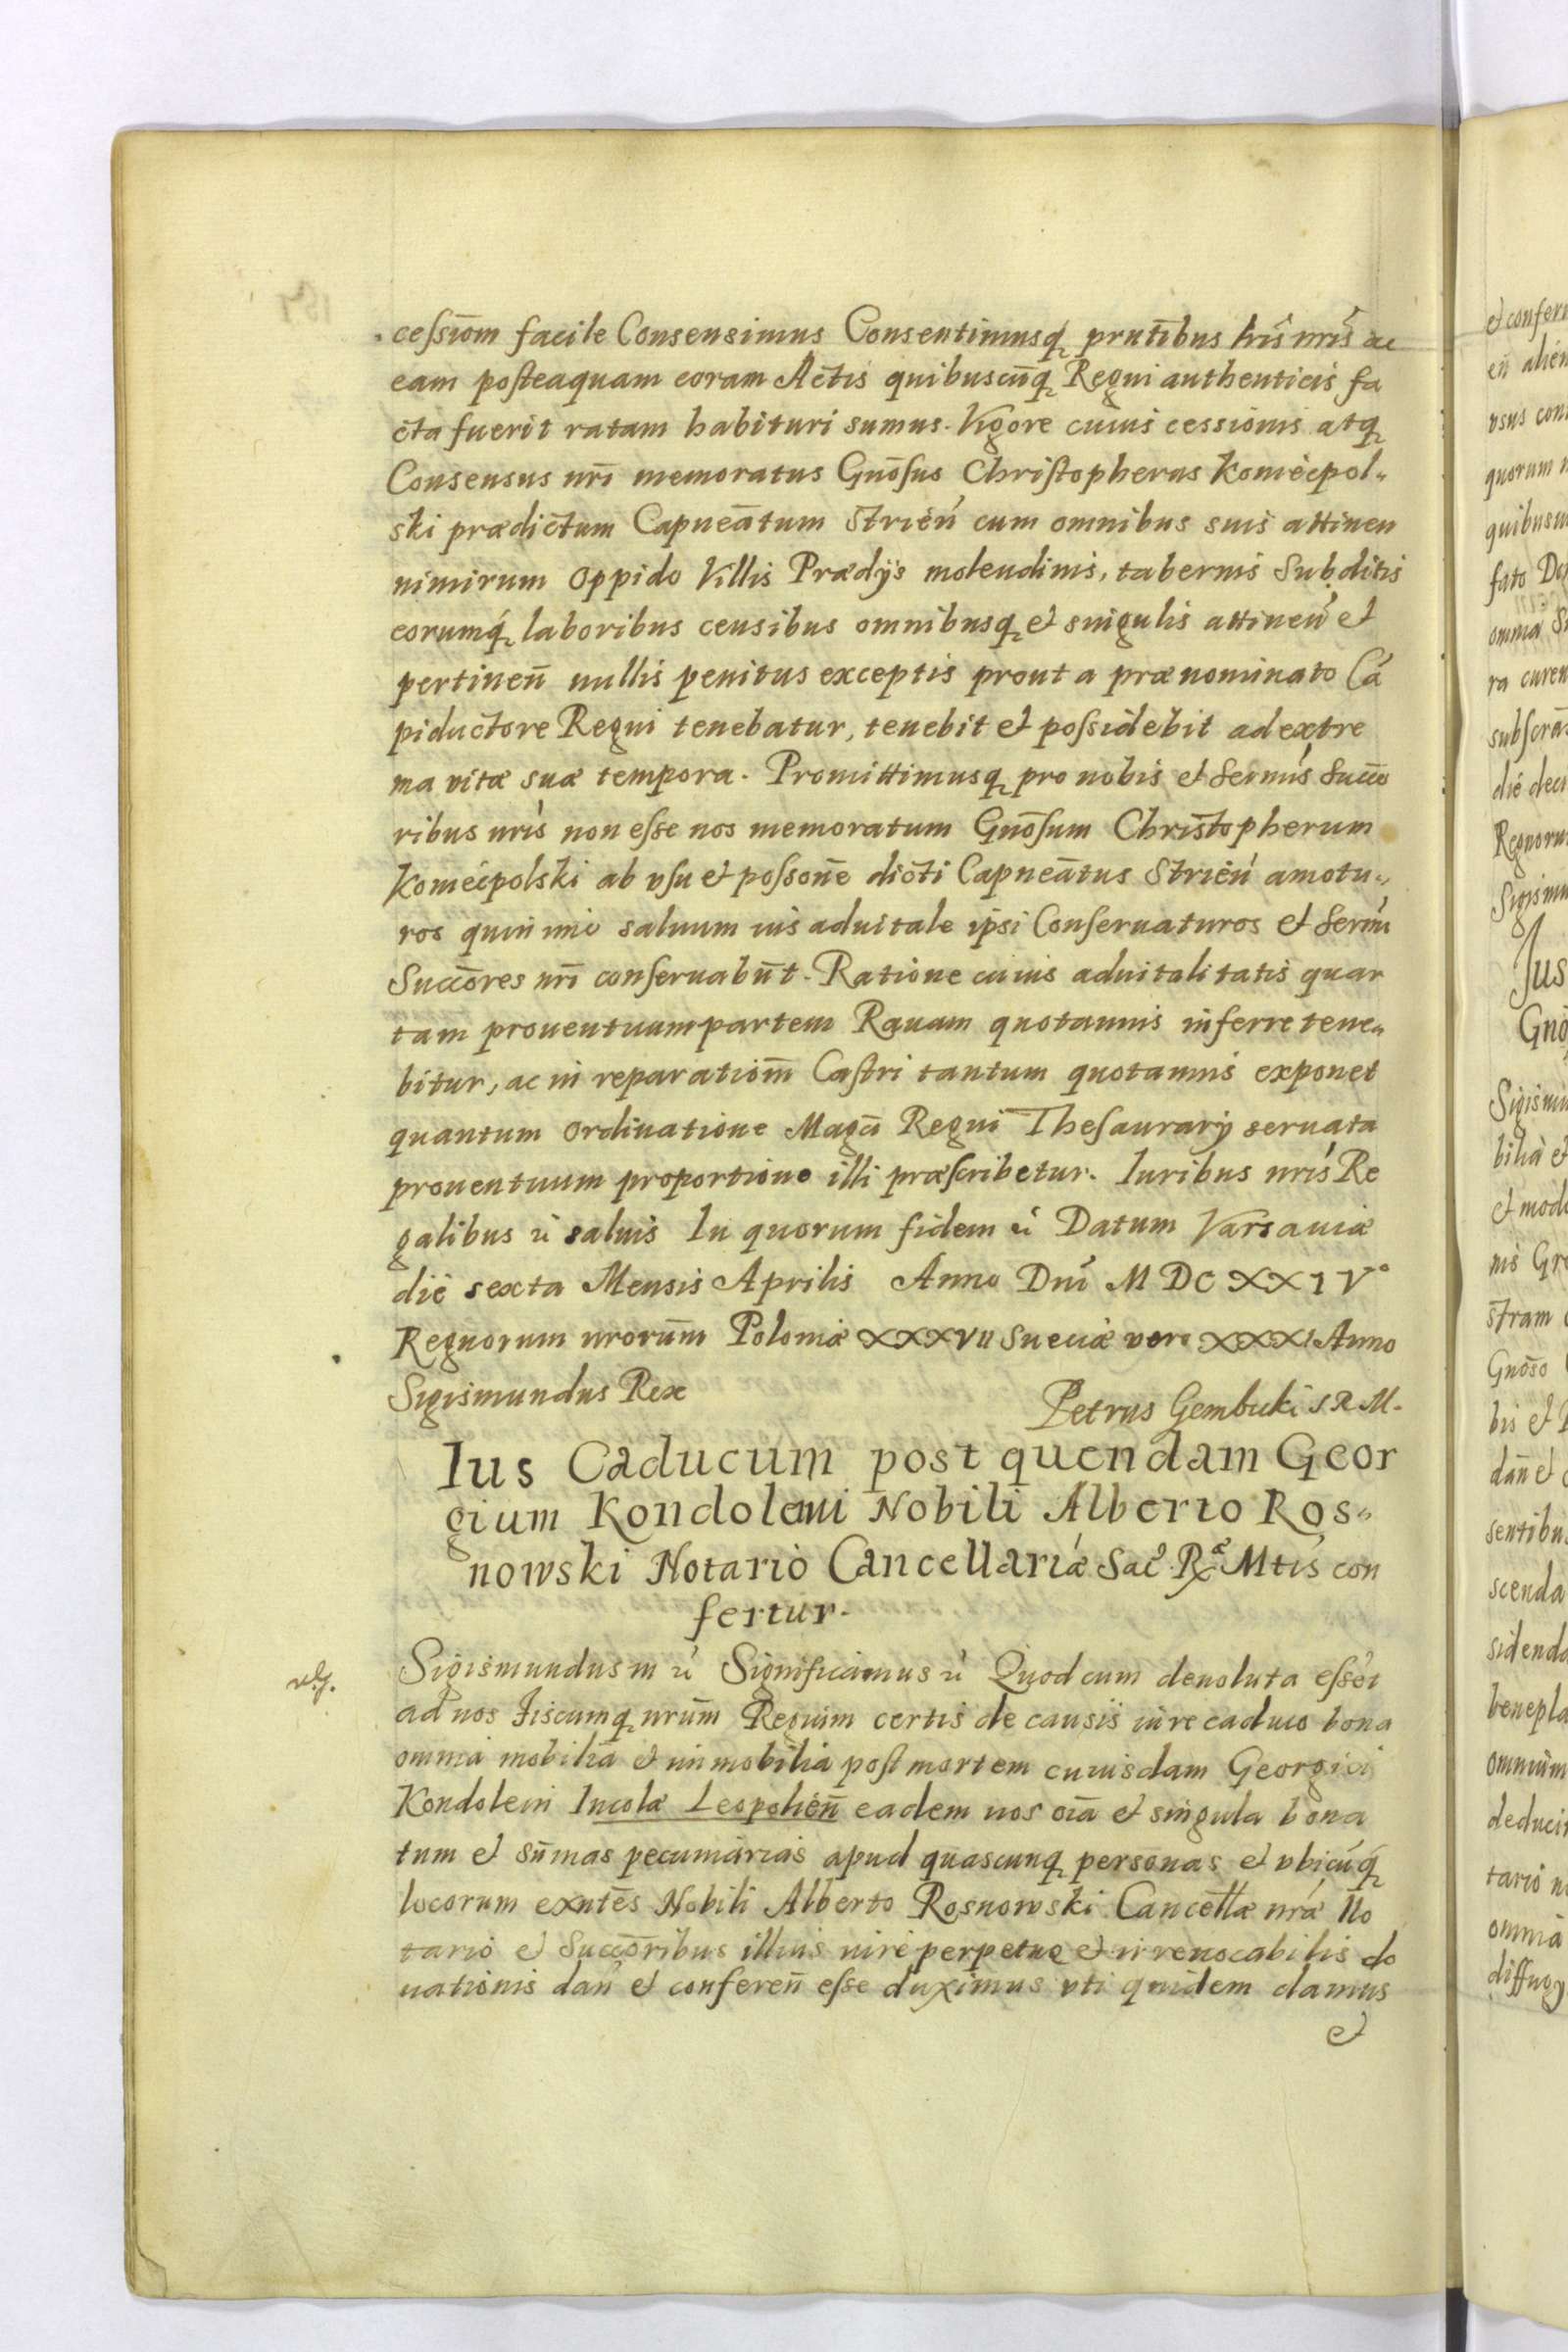 cessiom̄ facile Consensimus Consentimusq́ꝫ prntībus hrīs nrīs ac
eam posteaquam coram Actīs quibuscūqꝫ Regni authenticis fa
cta fuerit ratam habituri sumus. Vigore cuius cessionis atqꝫ
Consensus nrī memoratus Gnōsus Christopherus Koniecpol„
ski prædictum Capneātum Strień cum omnibus suis attinen
nimirum oppido Villis Prædijs molendinis, tabernis Subditis
eorumq́ꝫ laboribus censibus omnibusqꝫ et singulis attineń et
pertineñ nullis penitus exceptis prout a prænominato Ca
piductore Regni tenebatur, tenebit et possidebit ad extre
ma vitæ suæ tempora. Promittimusqꝫ pro nobis et Sernis Succo
ribus nrīs non esse nos memoratum Gnōsum Christopherum
Koniecpolski ab vsu et possonē dicti Capneātus Strień amotu„
ros quinimo saluum ius aduitale ipsi Conseruaturos et Sermi
Succōres nrī conseruabūt. Ratione cuius aduitalitatis quar
tam prouentuum partem Rauam quotannis inferre tene„
bitur, ac in reparatiom̄ Castri tantum quotannis exponet
quantum ordinatione Magci Regni Thesaurarij seruata
prouentuum proportione illi præscribetur. Iuribus nrīs Re
galibus ꝛć saluis In quorum fidem ꝛć Datum Varsauiæ
die sexta Mensis Aprilis Anno Dnī M DC XXIV°
Regnorum nrorūm Poloniæ XXXVII Sueciæ vero XXXI Anno
Sigismundus Rex
Petrus Gembicki S R M.
Ius Caducum post quendam Geor
gium Kondoleni Nobili Alberto Ros„
nowski Notario Cancellariæ Sac R Mtis con
fertur.
Sigismundus III ꝛć Significamus ꝛć Quod cum deuoluta esset
ad nos Fiscumqꝫ nrūm Regium certis de causis iure caduco bona
omnia mobilia et immobilia post mortem cuiusdam Georgii
Kondoleni Incolæ Leopolień eadem nos oīa et singula bona
tum et sūmas pecuniarias apud quascunqꝫ personas et vbicúq́ꝫ
locorum exntēs Nobili Alberto Rosnowski Cancellæ nræ No
tario et Succōribus illius iure perpetuæ et irreuocabilis do
nationis dań et confereñ esse duximus vti quidem damus
et